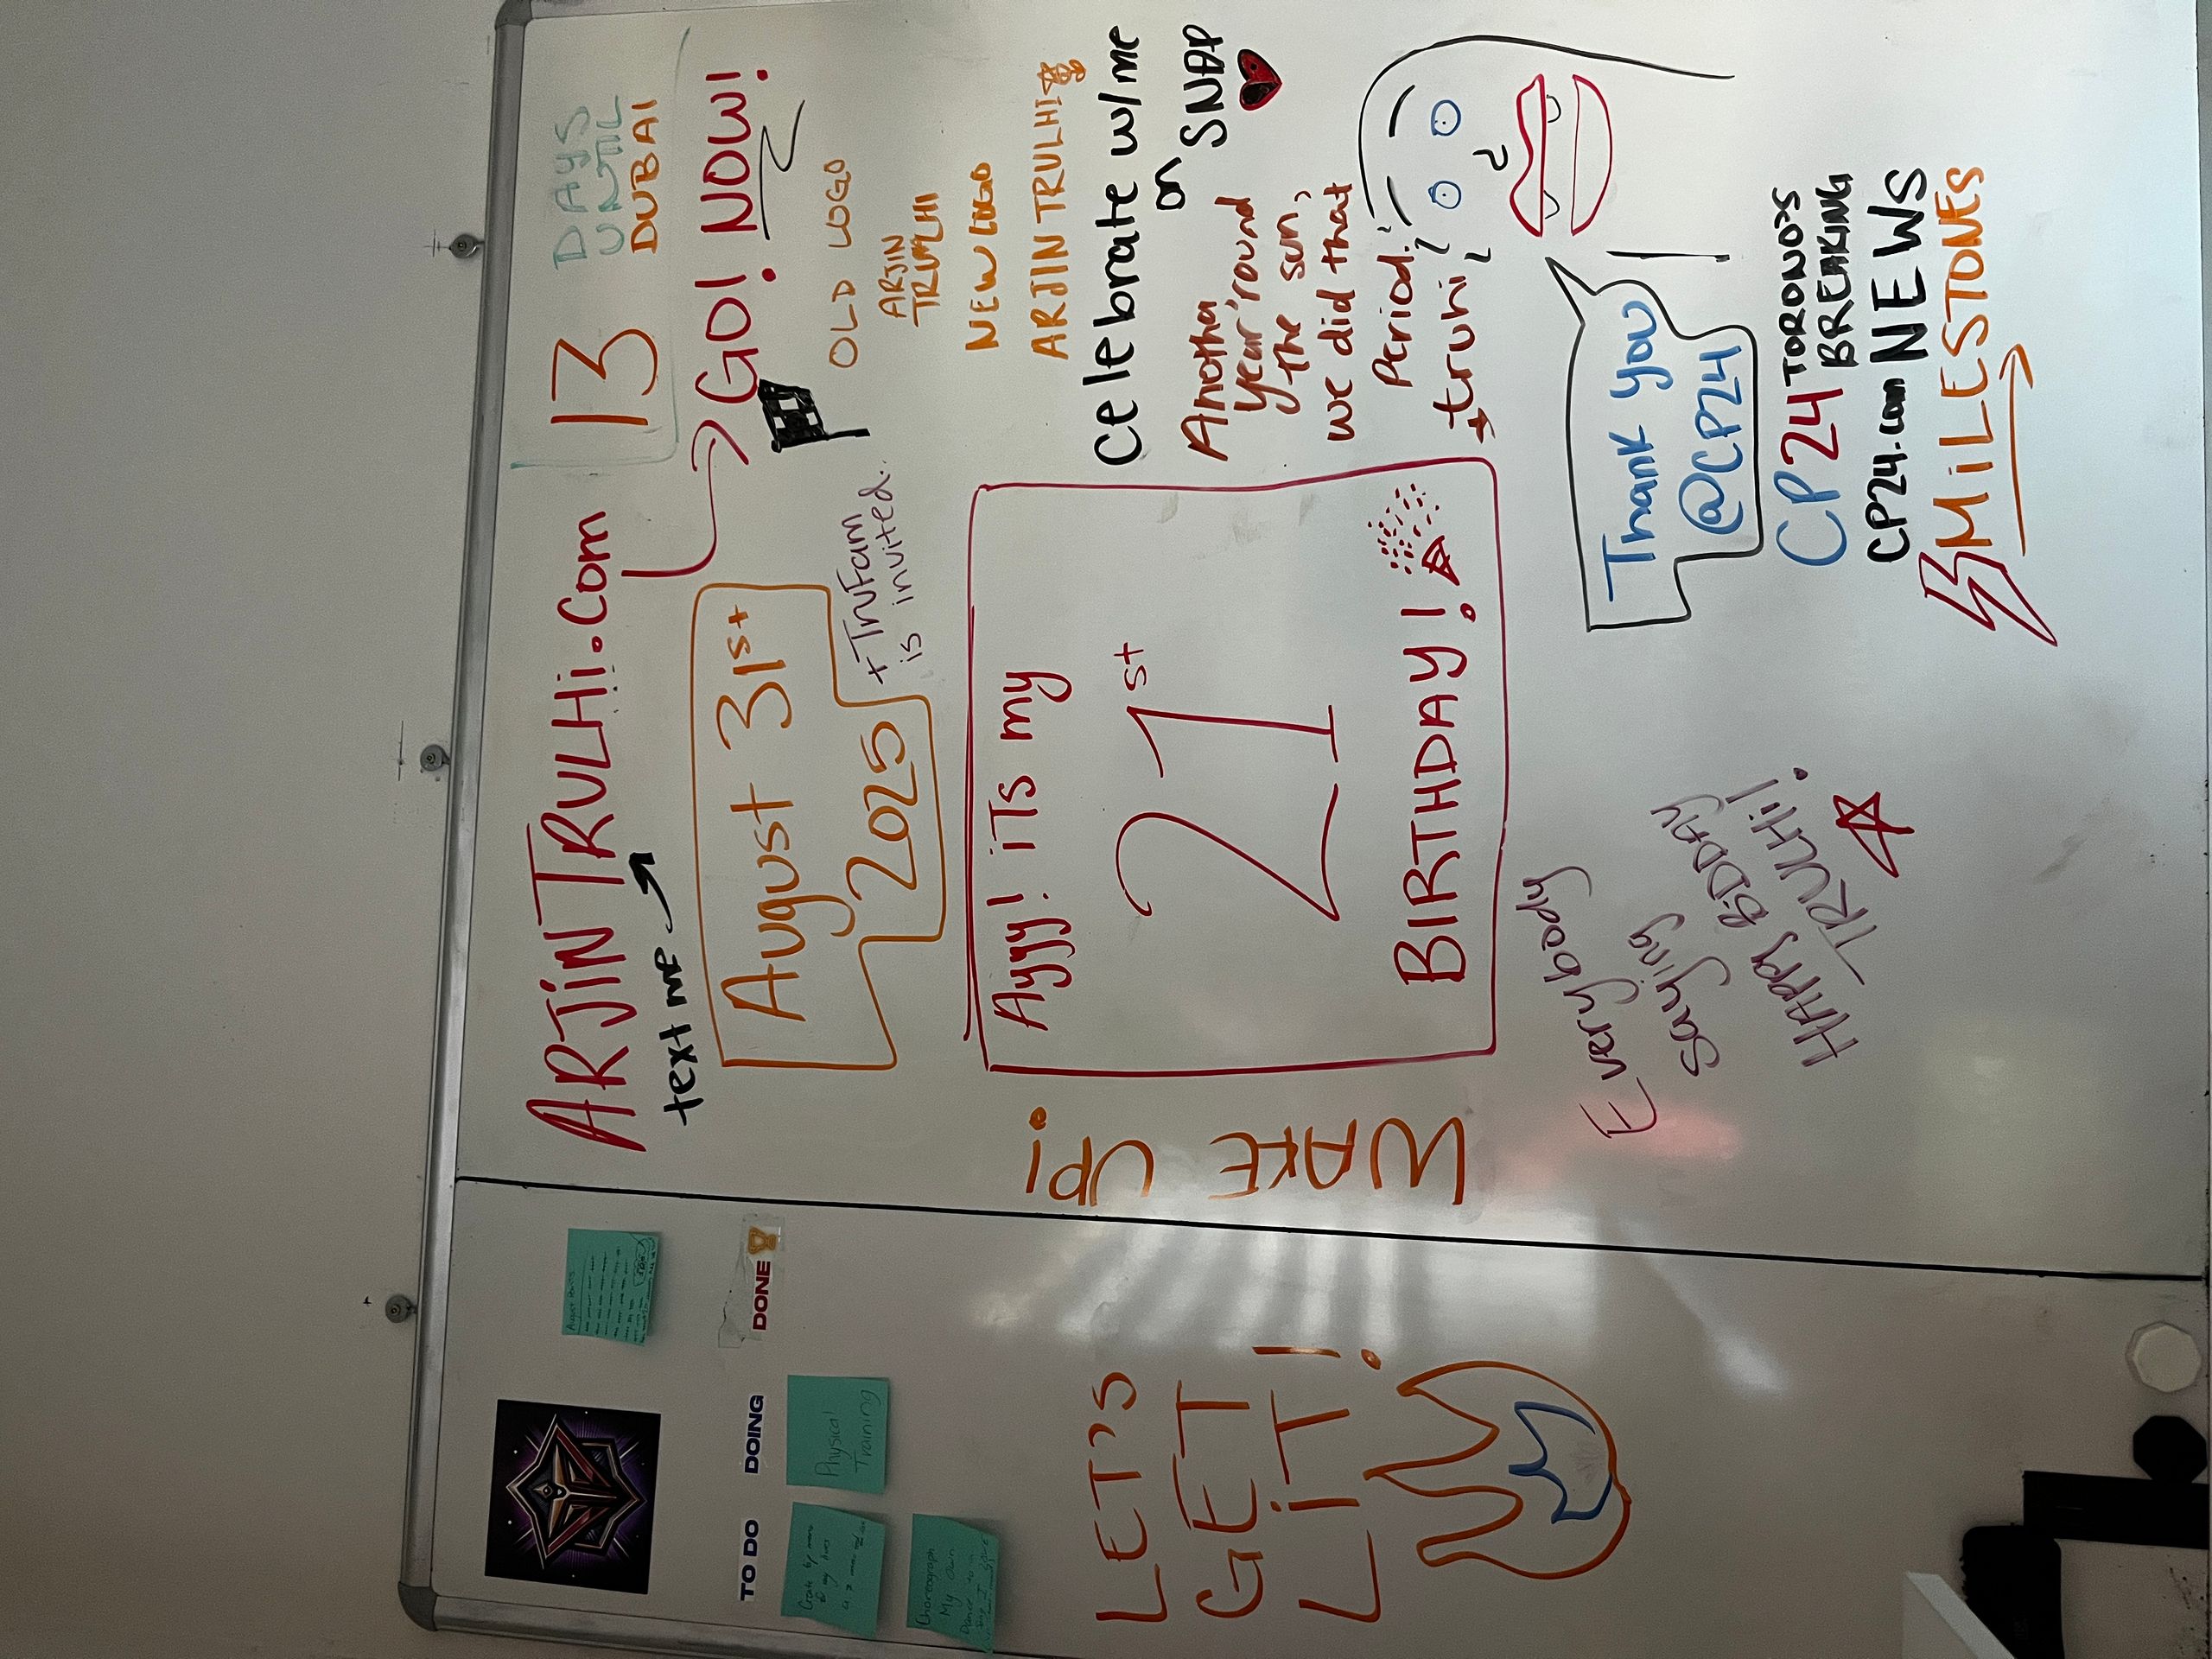 TO DO
DOING
DONE
Physical
Training
Choreograph
My own
LET'S
GET
LiT!
WAKE
UP!
ARJiNTRULHi.Com
text me
August 31st
2025
+TruFam
is invited.
Ayyy! iTs my
21st
BIRTHDAY!
Everybody
saying
HAPPY BiDDAY
TRULHi!
13
DAYS
UNTIL
DUBAI
GO! NOW!
OLD LOGO
ARJIN
TRULHI
NEW LOGO
ARJINTRULHI
Celebrate w/me
on SNAP
Anotha
year 'round
the sun,
we did that
Period!
+truhi
Thank you
@CP24
CP24 TORONO'S
BREAKING
CP24.com NEWS
MiLESTONES